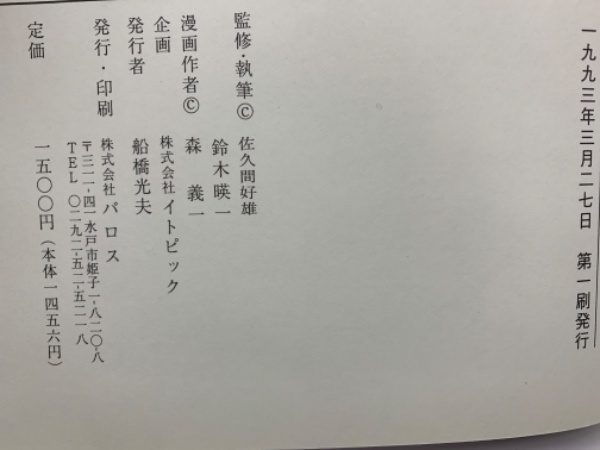 一九九三年三月二七日　第一刷発行
監修・執筆©　佐久間好雄
鈴木暎一
漫画作者©　森　義一
企画　株式会社イトピック
発行者　船橋光夫
発行・印刷　株式会社バロス
〒三一一-四一水戸市姫子一-八二〇-八
TEL　〇二九二-五二-五二一八
定価　一五〇〇円（本体一四五六円）